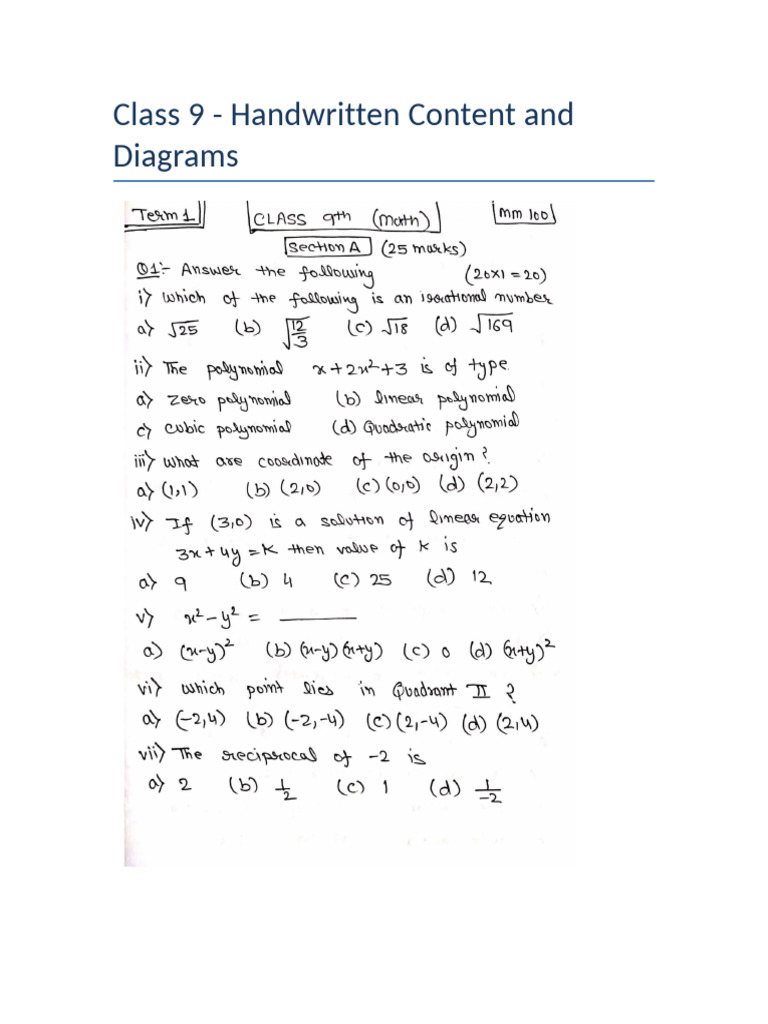 Class 9 - Handwritten Content and
Diagrams
Term 1 CLASS 9th (Math) MM 100
Section A (25 marks)
Q1:- Answer the following (20x1=20)
i) Which of the following is an irrational number
a) √25 (b) √12/3 (c) √18 (d) √169
ii) The polynomial x+2x²+3 is of type
a) Zero polynomial (b) linear polynomial
c) Cubic polynomial (d) Quadratic polynomial
iii) What are coordinate of the origin?
a) (1,1) (b) (2,0) (c) (0,0) (d) (2,2)
iv) If (3,0) is a solution of linear equation
3x+4y=K then value of k is
a) 9 (b) 4 (c) 25 (d) 12
v) x²-y² = ________
a) (x-y)² (b) (x-y)(x+y) (c) 0 (d) (x+y)²
vi) Which point lies in Quadrant II ?
a) (-2,4) (b) (-2,-4) (c) (2,-4) (d) (2,4)
vii) The reciprocal of -2 is
a) 2 (b) 1/2 (c) 1 (d) 1/-2